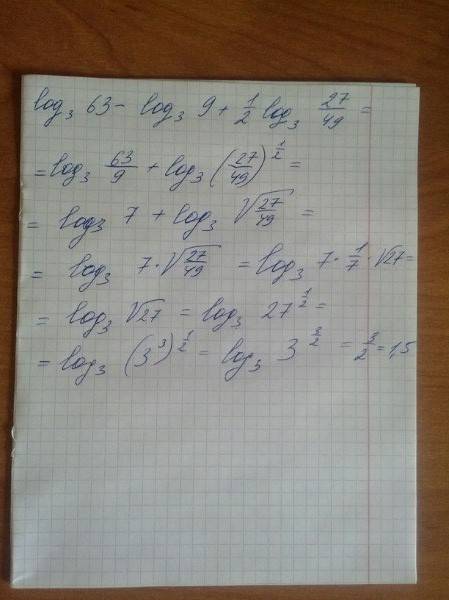 log₃ 63 - log₃ 9 + 1/2 log₃ 27/49 =
= log₃ 63/9 + log₃ (27/49)^(1/2) =
= log₃ 7 + log₃ √(27/49) =
= log₃ 7 · √(27/49) = log₃ 7 · 1/7 · √27 =
= log₃ √27 = log₃ 27^(1/2) =
= log₃ (3³)^(1/2) = log₃ 3^(3/2) = 3/2 = 1,5